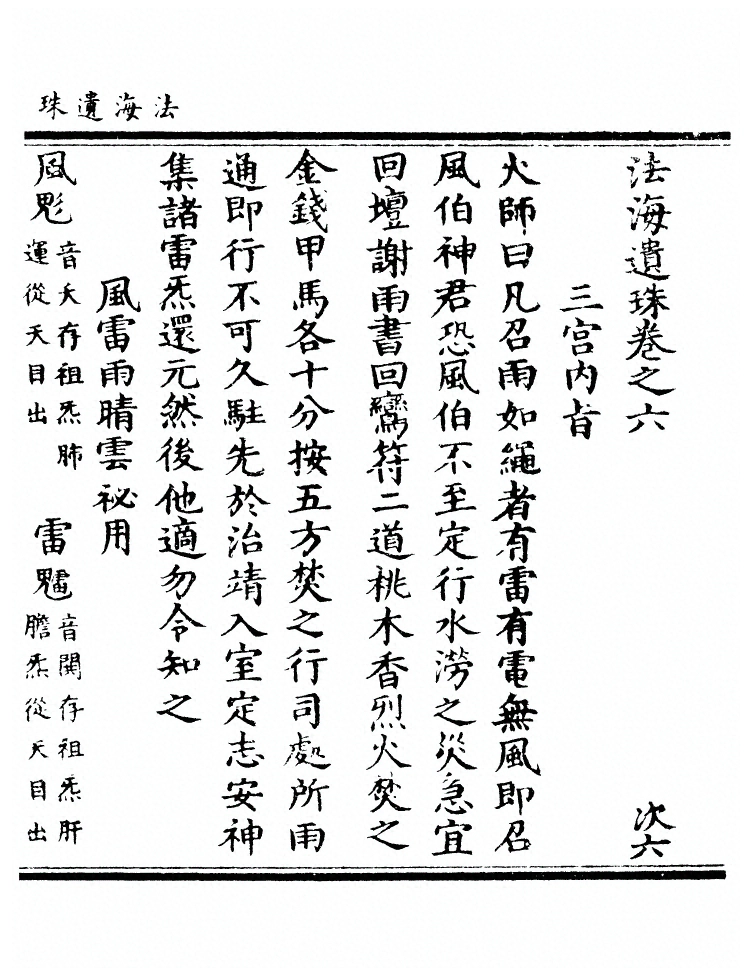 法海遺珠
法海遺珠卷之六 次六
三宮内㫖
火師曰凡召雨如繩者有雷有電無風即召
風伯神君恐風伯不至定行水澇之災急宜
回壇謝雨書回鸞符二道桃木香烈火焚之
金錢甲馬各十分按五方焚之行司處所雨
通即行不可久駐先於治靖入室定志安神
集諸雷炁還元然後他適勿令知之
風雷雨晴雲祕用
風 音夭存祖炁肺
運從天目出
雷 音開存祖炁肝
膽炁從天目出